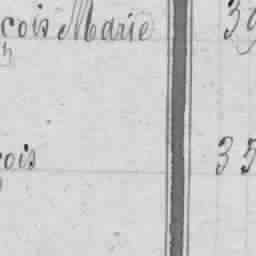 çois Marie 39
çois 35